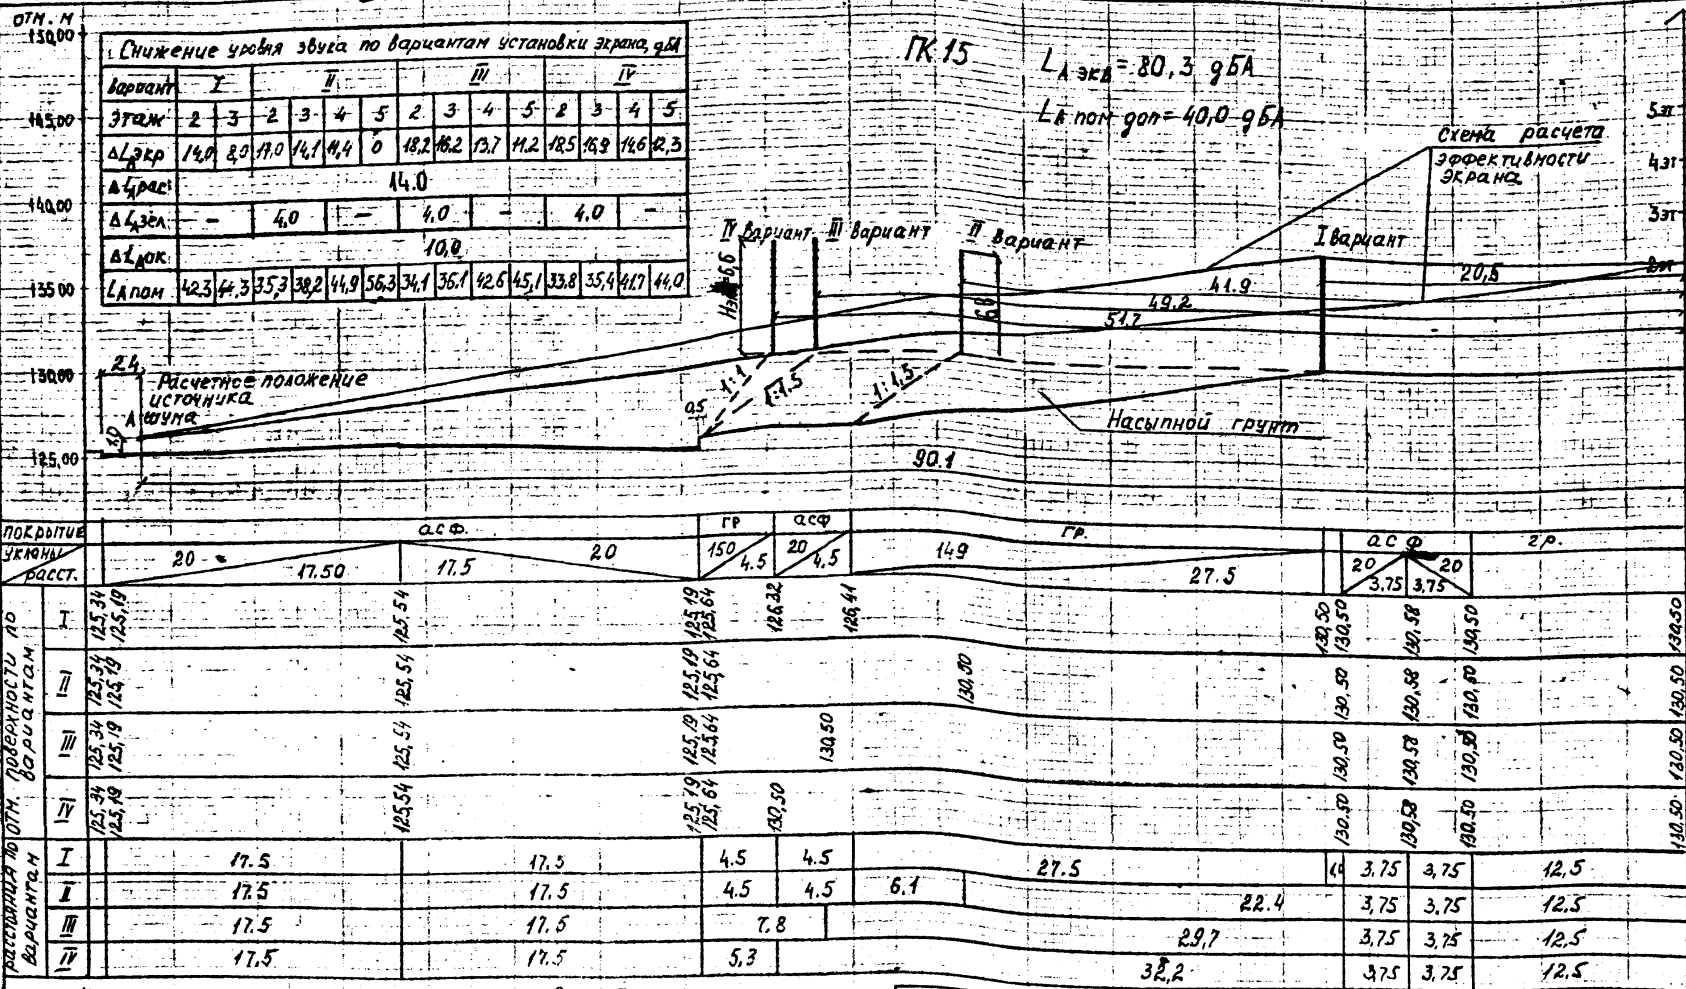 ОТМ. М
150,00
145,00
140,00
135,00
130,00
125,00
Снижение уровня звука по вариантам установки экрана, дБА
вариант I II III IV
Этаж 2 3 2 3 4 5 2 3 4 5 2 3 4 5
ΔLэкр 14,0 8,0 17,0 14,1 11,4 0 18,2 16,2 13,7 11,2 18,5 16,9 14,6 12,3
ΔLАрас 14.0
ΔLАзел. - 4,0 - 4,0 - 4,0 -
ΔLАок 10,0
LА пом 42,3 44,3 35,3 38,2 44,9 56,3 34,1 36,1 42,6 45,1 33,8 35,4 41,7 44,0
ПК 15
LА экв = 80,3 дБА
LА пом доп = 40,0 дБА
Схема расчета
эффективности
экрана
5эт
4эт
3эт
2эт
IV вариант III вариант
II вариант
I вариант
6,6
41.9
49.2
51.7
20,5
2.4
Расчетное положение
источника
шума
А
1.0
0.5
1:1
1:1.5
1:1.5
Насыпной грунт
90.1
покрытие асф. гр асф гр. асф гр.
уклоны 20 20 150 20 149 20 20
расст. 17.50 17.5 4.5 4.5 27.5 3.75 3.75
отм. поверхности по вариантам
I 125,34 125,19 125,54 125,19 125,64 126,32 126,41 130,50 130,50 130,58 130,50 130,50
II 125,34 125,19 125,54 125,19 125,64 130,50 130,58 130,50 130,50
III 125,34 125,19 125,54 125,19 125,64 130,50 130,50 130,58 130,50 130,50
IV 125,34 125,19 125,54 125,19 125,64 130,50 130,50 130,58 130,50 130,50
расстояния по вариантам
I 17.5 17.5 4.5 4.5 27.5 3,75 3,75 12,5
II 17.5 17.5 4.5 4.5 6.1 22.4 3,75 3.75 12.5
III 17.5 17.5 7.8 29,7 3,75 3,75 12,5
IV 17.5 17.5 5,3 32,2 3,75 3,75 12.5